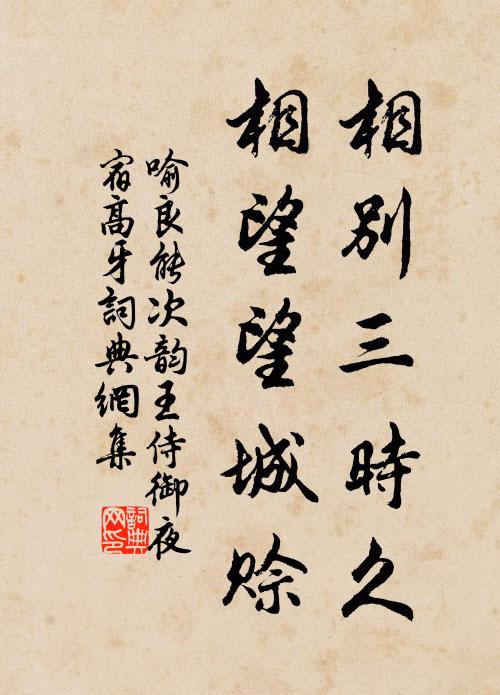 相別三時久
相望望城賒
喻良能次韵王侍御夜
宿高牙詞典網集
詞典網印